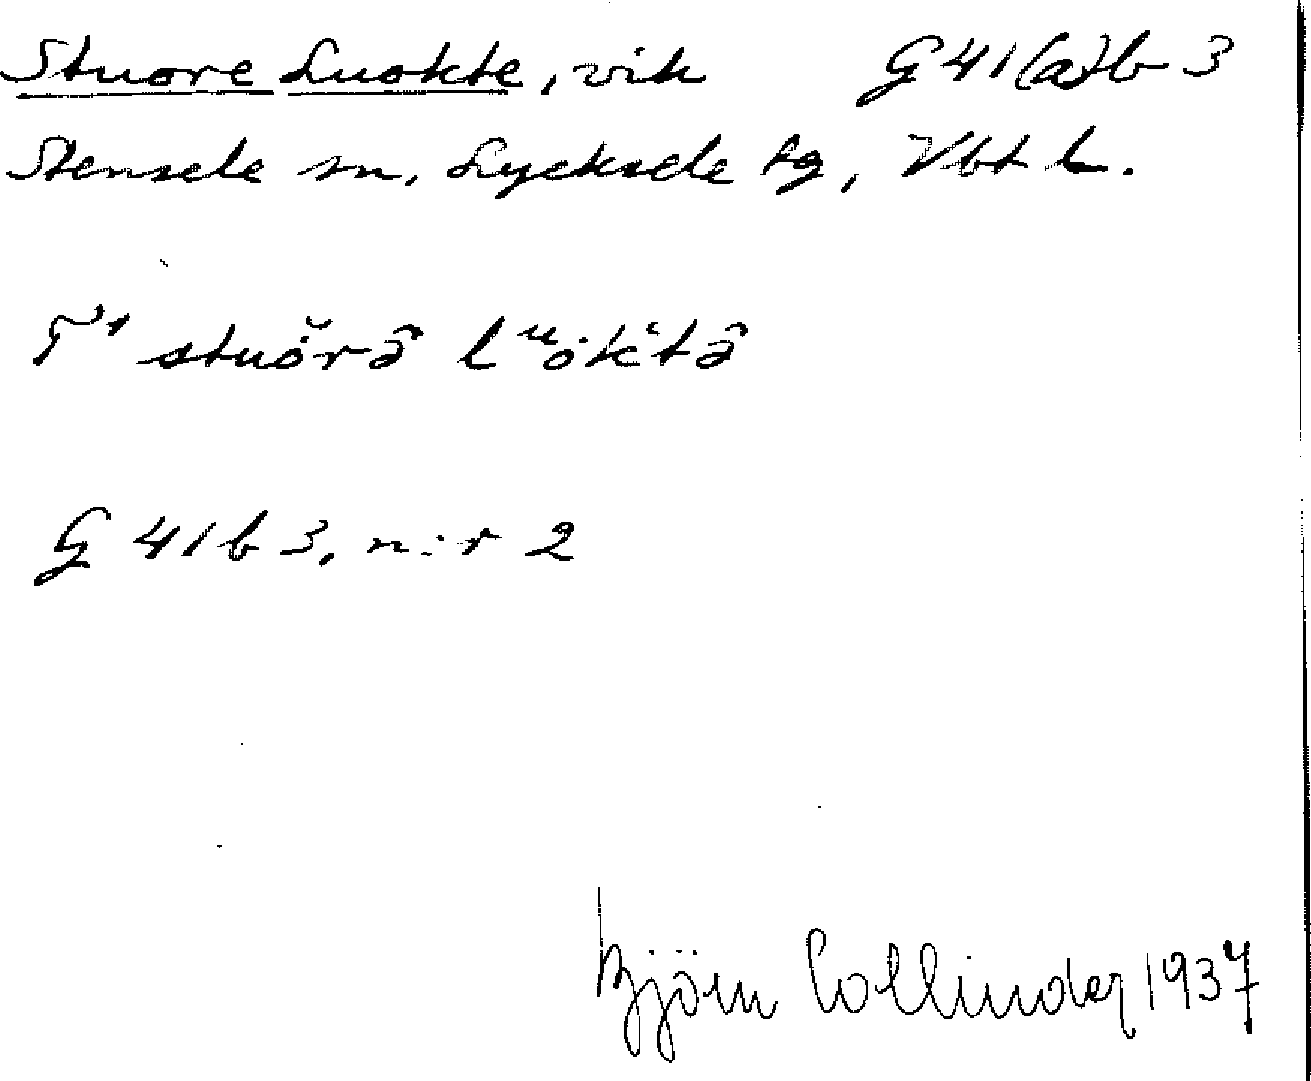 Stuore Luokte, vik G 41(a)b 3
Stensele sn, Lycksele tg, Vbt l.
stuȯ̆râ̱ lᵘȯk‛tâ̱
G 41 b 3, n:r 2
Björn Collinder 1937